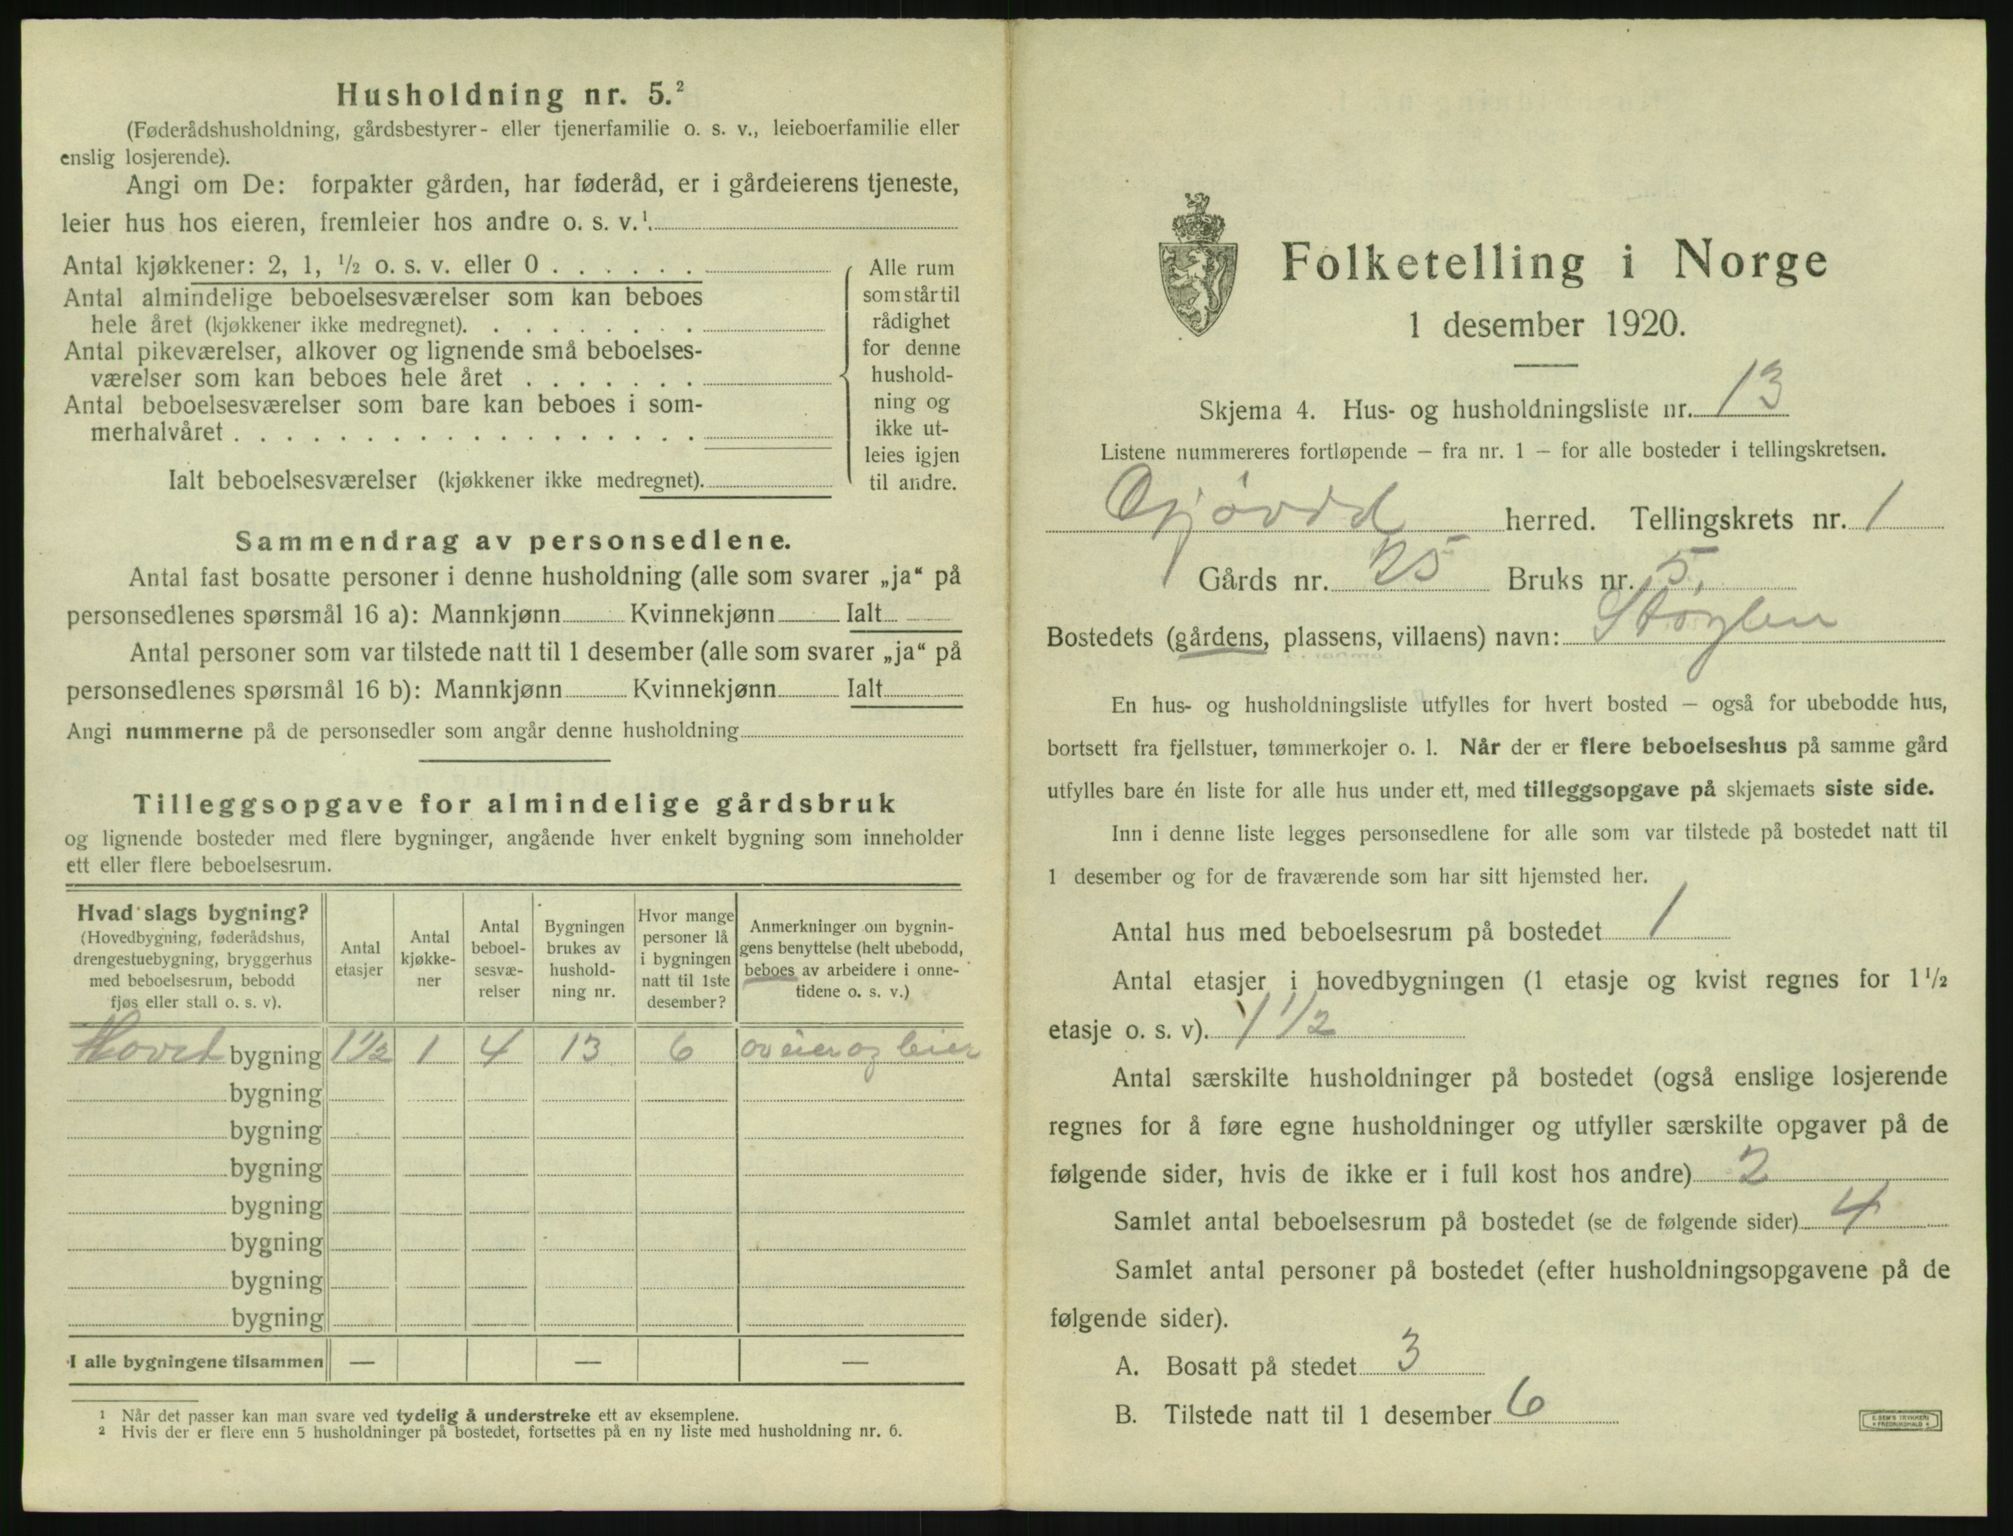 Husholdning nr. 5.²
(Føderådshusholdning, gårdsbestyrer- eller tjenerfamilie o. s. v., leieboerfamilie eller
enslig losjerende).
Angi om De: forpakter gården, har føderåd, er i gårdeierens tjeneste,
leier hus hos eieren, fremleier hos andre o. s. v.¹
Antal kjøkkener: 2, 1, ½ o. s. v. eller 0
Antal almindelige beboelsesværelser som kan beboes
hele året (kjøkkener ikke medregnet).
Antal pikeværelser, alkover og lignende små beboelses-
værelser som kan beboes hele året
Antal beboelsesværelser som bare kan beboes i som-
merhalvåret
Ialt beboelsesværelser (kjøkkener ikke medregnet).
Alle rum
som står til
rådighet
for denne
hushold-
ning og
ikke ut-
leies igjen
til andre.
Sammendrag av personsedlene.
Antal fast bosatte personer i denne husholdning (alle som svarer „ja“ på
personsedlenes spørsmål 16 a): Mannkjønn Kvinnekjønn Ialt
Antal personer som var tilstede natt til 1 desember (alle som svarer „ja“ på
personsedlenes spørsmål 16 b): Mannkjønn Kvinnekjønn Ialt
Angi nummerne på de personsedler som angår denne husholdning
Tilleggsopgave for almindelige gårdsbruk
og lignende bosteder med flere bygninger, angående hver enkelt bygning som inneholder
ett eller flere beboelsesrum.
Hvad slags bygning?
(Hovedbygning, føderådshus,
drengestuebygning, bryggerhus
med beboelsesrum, bebodd
fjøs eller stall o. s. v).
Antal
etasjer
Antal
kjøkke-
ner
Antal
beboel-
sesvæ-
relser
Bygningen
brukes av
hushold-
ning nr.
Hvor mange
personer lå
i bygningen
natt til 1ste
desember?
Anmerkninger om bygnin-
gens benyttelse (helt ubebodd,
beboes av arbeidere i onne-
tidene o. s. v.)
Hoved bygning 1½ 1 4 13 6 av eier og leier
bygning
bygning
bygning
bygning
bygning
bygning
bygning
I alle bygningene tilsammen — — —
¹ Når det passer kan man svare ved tydelig å understreke ett av eksemplene.
² Hvis der er flere enn 5 husholdninger på bostedet, fortsettes på en ny liste med husholdning nr. 6.
Folketelling i Norge
1 desember 1920.
Skjema 4. Hus- og husholdningsliste nr. 13
Listene nummereres fortløpende – fra nr. 1 – for alle bosteder i tellingskretsen.
Gjøvdd herred. Tellingskrets nr. 1
Gårds nr. 25 Bruks nr. 5.
Bostedets (gårdens, plassens, villaens) navn: Støylen
En hus- og husholdningsliste utfylles for hvert bosted – også for ubebodde hus,
bortsett fra fjellstuer, tømmerkojer o. l. Når der er flere beboelseshus på samme gård
utfylles bare én liste for alle hus under ett, med tilleggsopgave på skjemaets siste side.
Inn i denne liste legges personsedlene for alle som var tilstede på bostedet natt til
1 desember og for de fraværende som har sitt hjemsted her.
Antal hus med beboelsesrum på bostedet 1
Antal etasjer i hovedbygningen (1 etasje og kvist regnes for 1½
etasje o. s. v). 1½
Antal særskilte husholdninger på bostedet (også enslige losjerende
regnes for å føre egne husholdninger og utfyller særskilte opgaver på de
følgende sider, hvis de ikke er i full kost hos andre) 2
Samlet antal beboelsesrum på bostedet (se de følgende sider) 4
Samlet antal personer på bostedet (efter husholdningsopgavene på de
følgende sider).
A. Bosatt på stedet 3
B. Tilstede natt til 1 desember 6
E. SEM'S TRYKKERI
FREDRIKSHALD